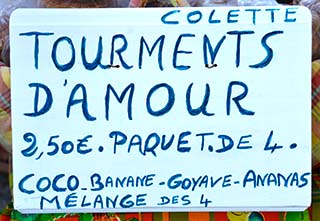 COLETTE
TOURMENTS
D'AMOUR
2,50€. PAQUET. DE 4.
COCO-BANANE-GOYAVE-ANANAS
MÉLANGE DES 4